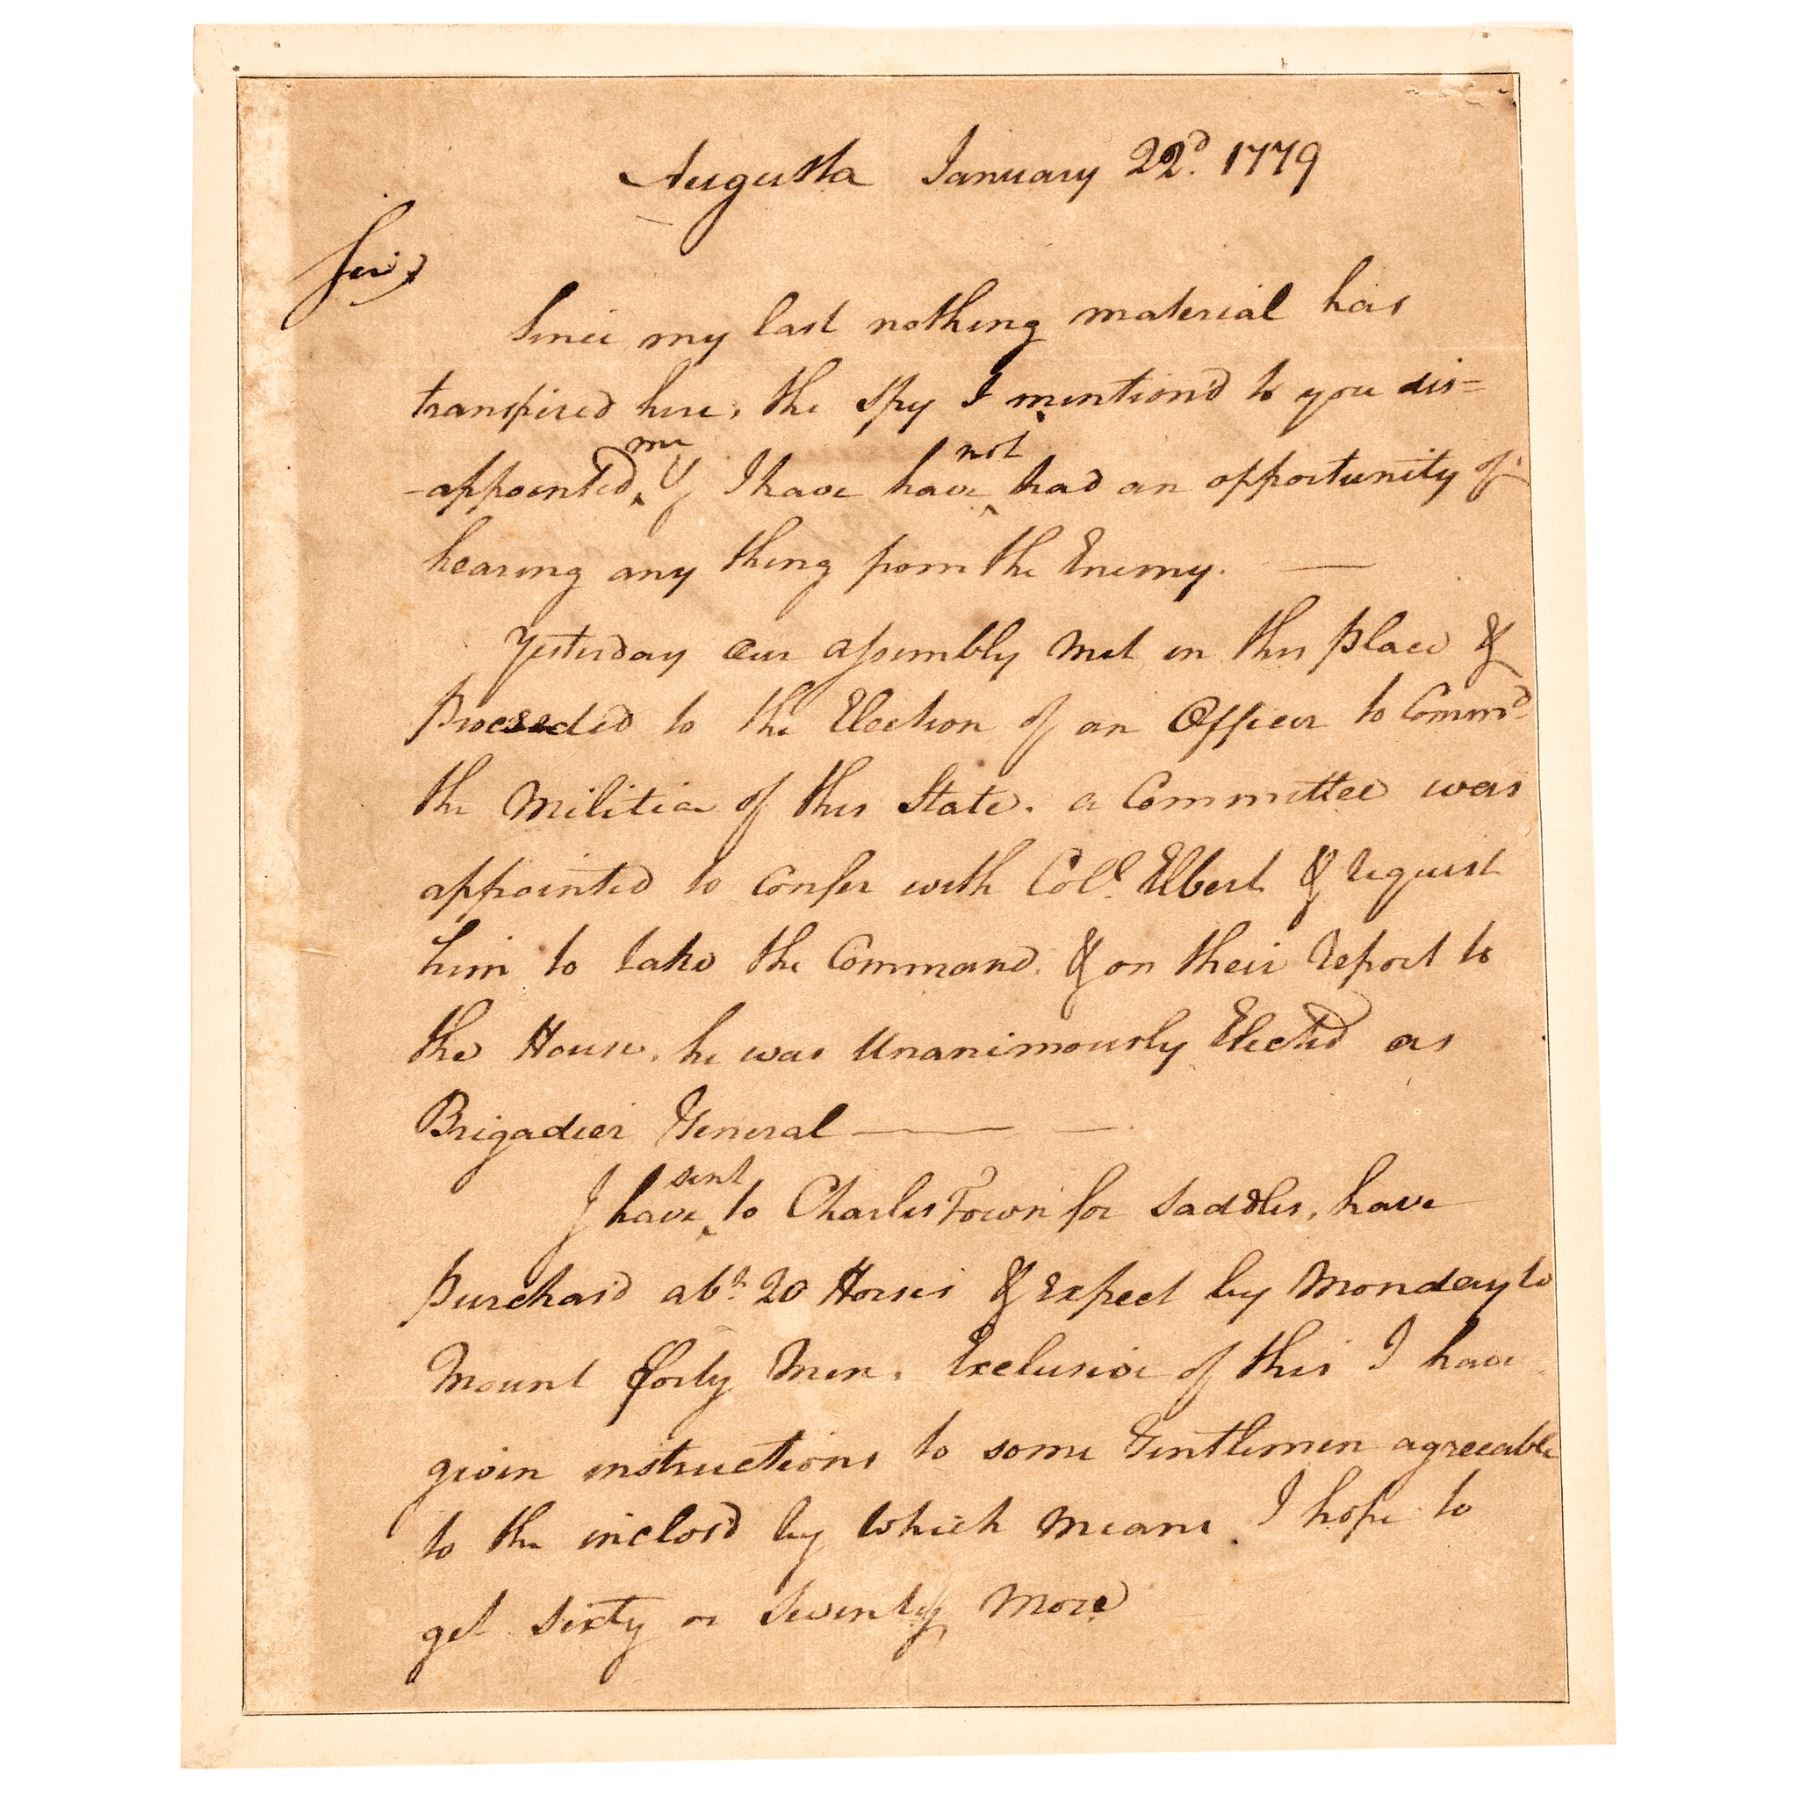 Augusta January 22d. 1779
Sir,
Since my last nothing material has
transpired here, the spy I mention'd to you dis=
-appointed me & I have have not had an opportunity of
hearing any thing from the Enemy. —
Yesterday our assembly met in this place &
Proceeded to the Election of an Officer to Commd.
the Militia of this State. a Committee was
appointed to confer with Coll. Elbert & request
him to take the Command. & on their report to
the House, he was Unanimously Elected as
Brigadier General — —
I have sent to Charles Town for Saddles, have
Purchas'd abt. 20 Horses & Expect by Monday to
Mount fforty Men. Exclusive of this I have
given instructions to some Gentlemen agreeable
to the inclos'd by which means I hope to
get sixty or Seventy More